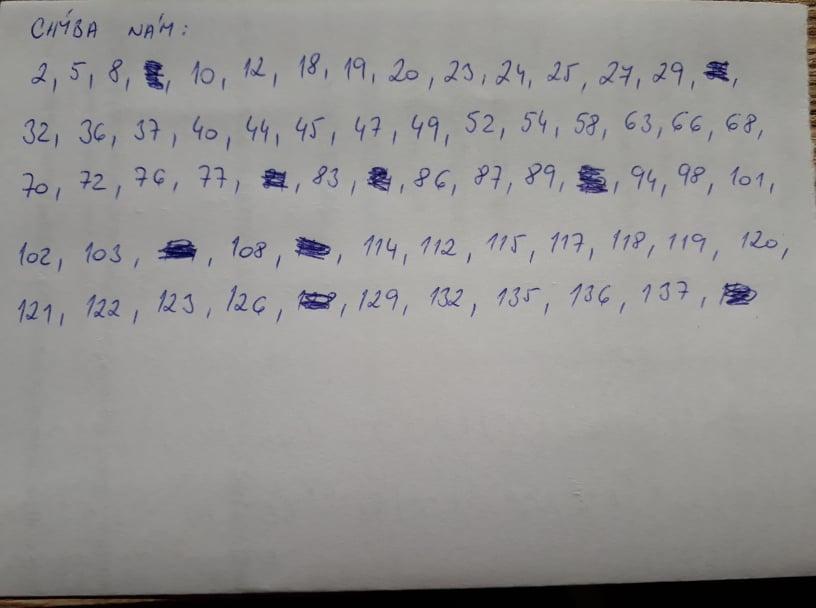 CHÝBA NÁM:
2, 5, 8, , 10, 12, 18, 19, 20, 23, 24, 25, 27, 29, ,
32, 36, 37, 40, 44, 45, 47, 49, 52, 54, 58, 63, 66, 68,
70, 72, 76, 77, , 83, , 86, 87, 89, , 94, 98, 101,
102, 103, , 108, , 114, 112, 115, 117, 118, 119, 120,
121, 122, 123, 126, , 129, 132, 135, 136, 137,